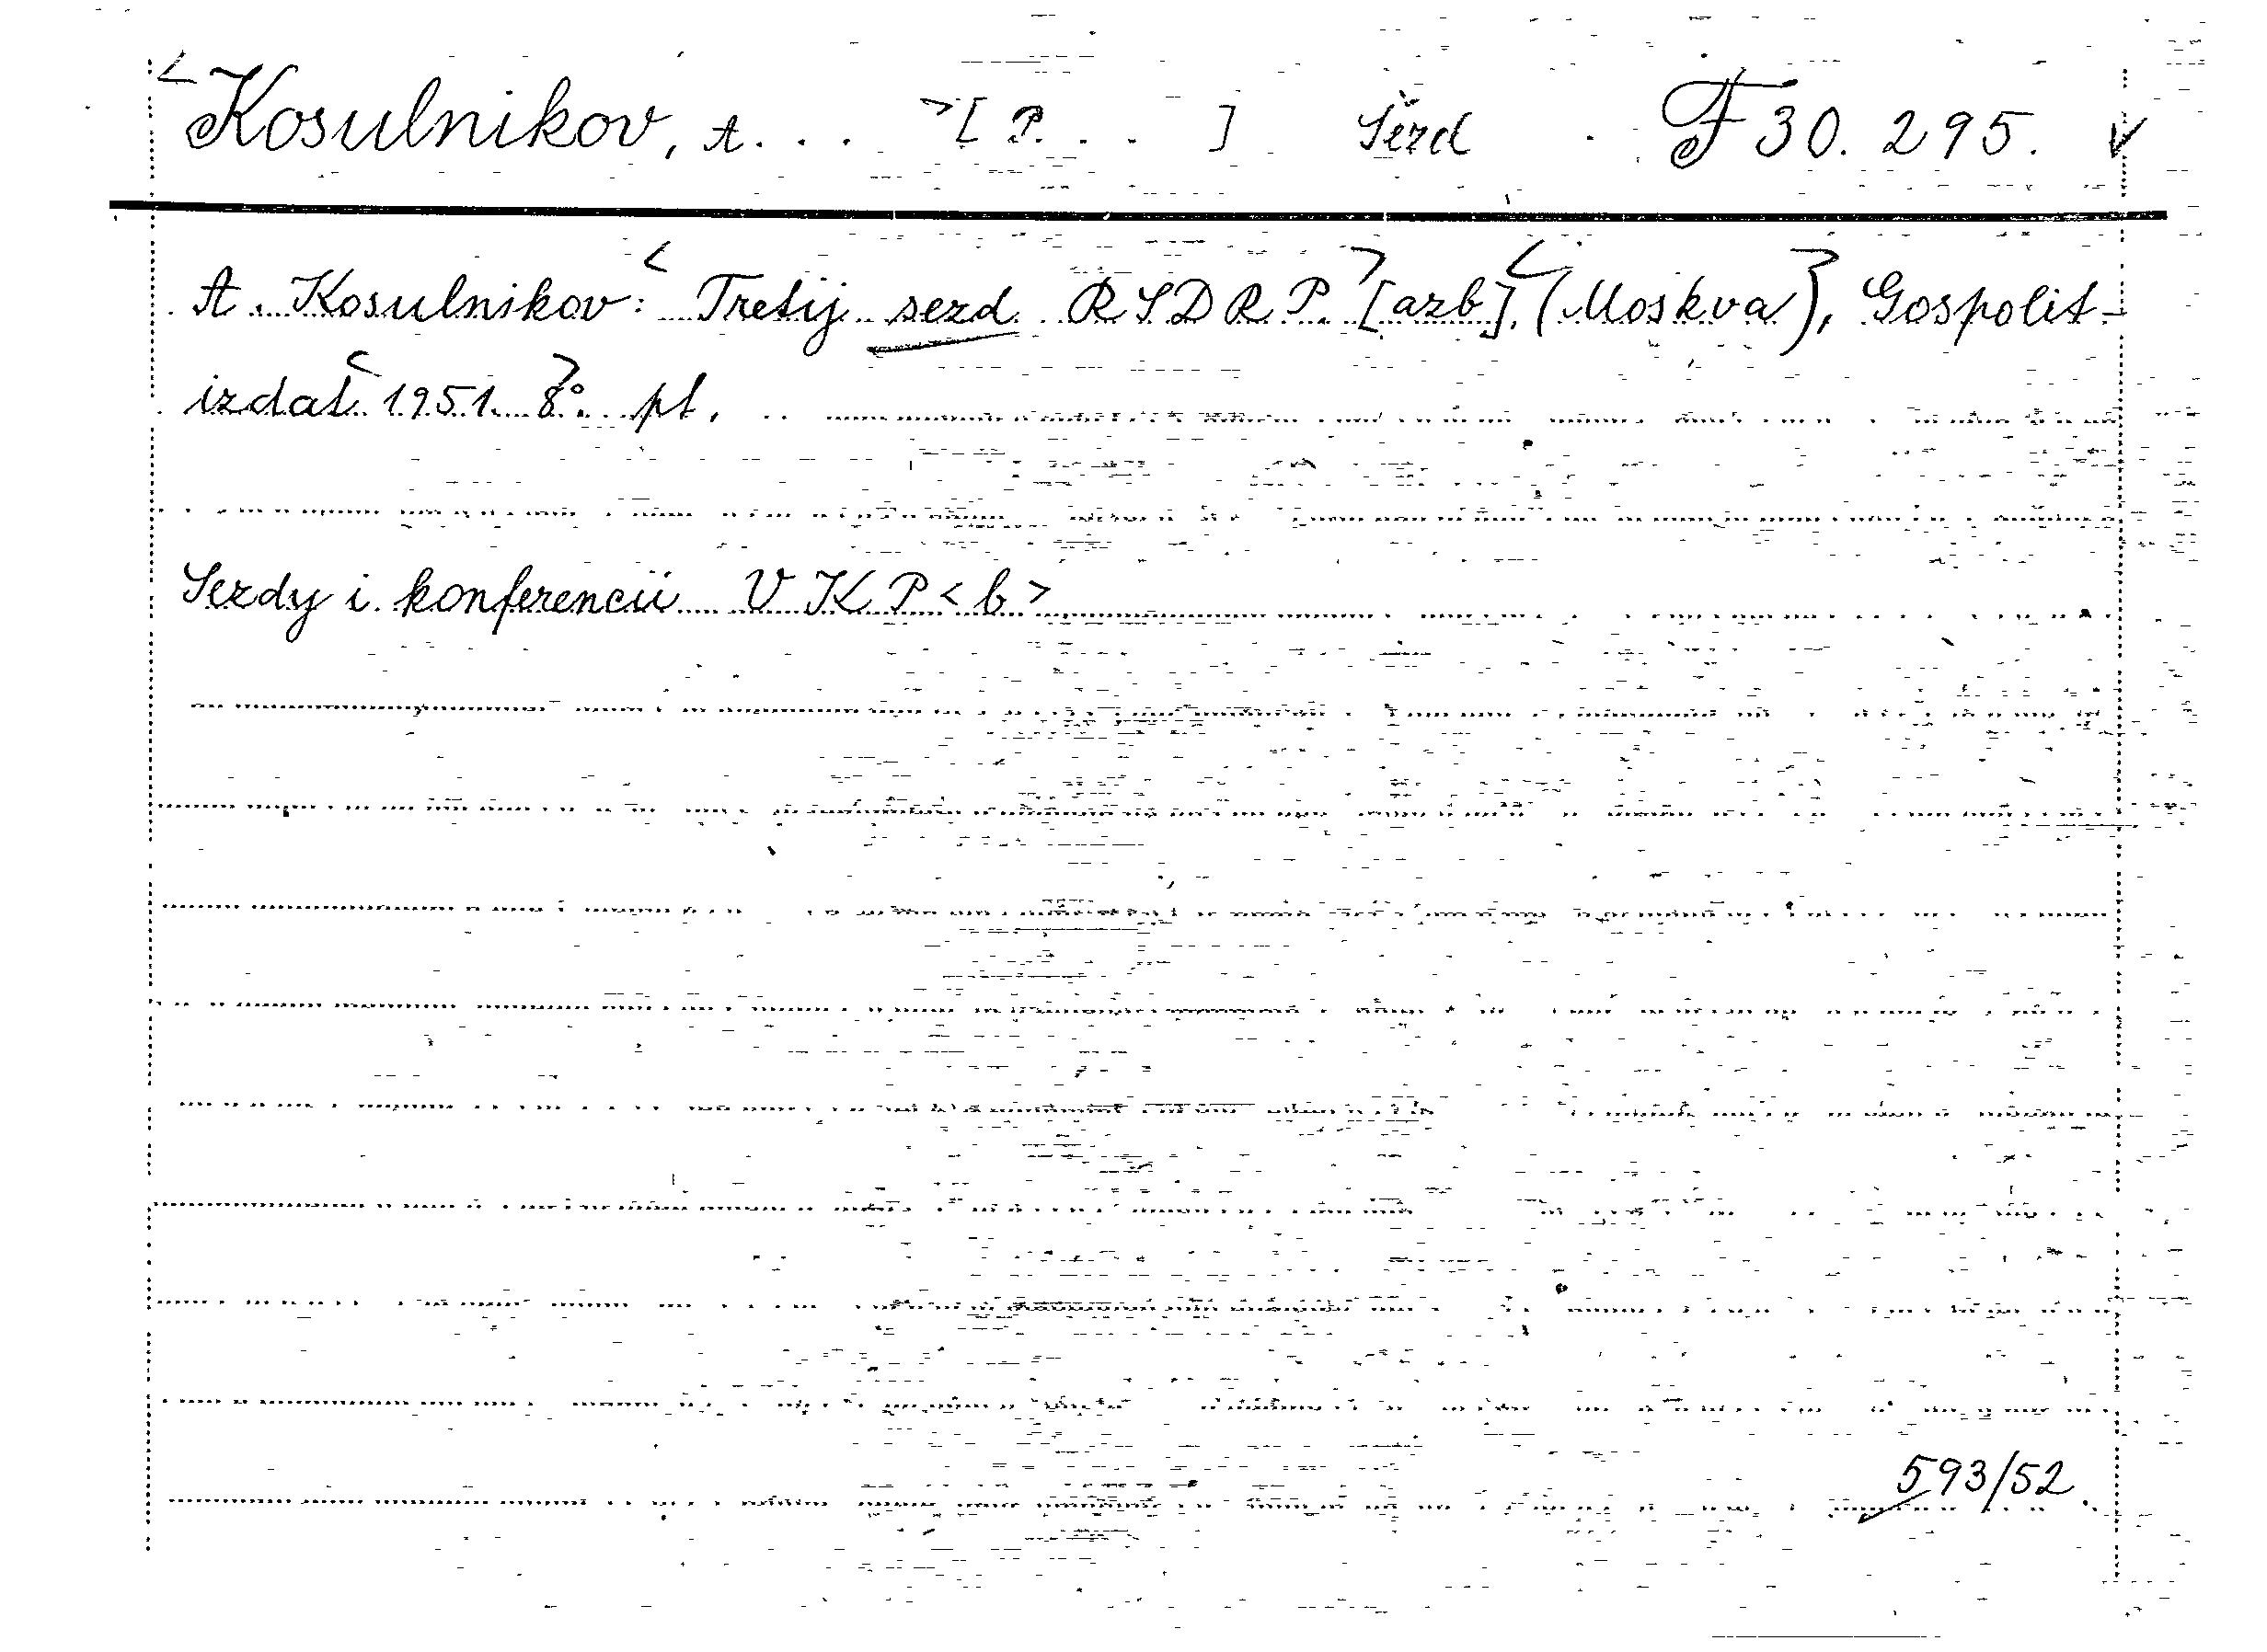 <Kosulnikov, A. . . >[P. . . ] Sezd F 30.295. v
A. Kosulnikov: <Tretij sezd RSDRP.> [azb]. <(Moskva)>, Gospolit-
izdat <1951. 8°.> pl.
Sezdy i konferencii VKP<b>
593/52.